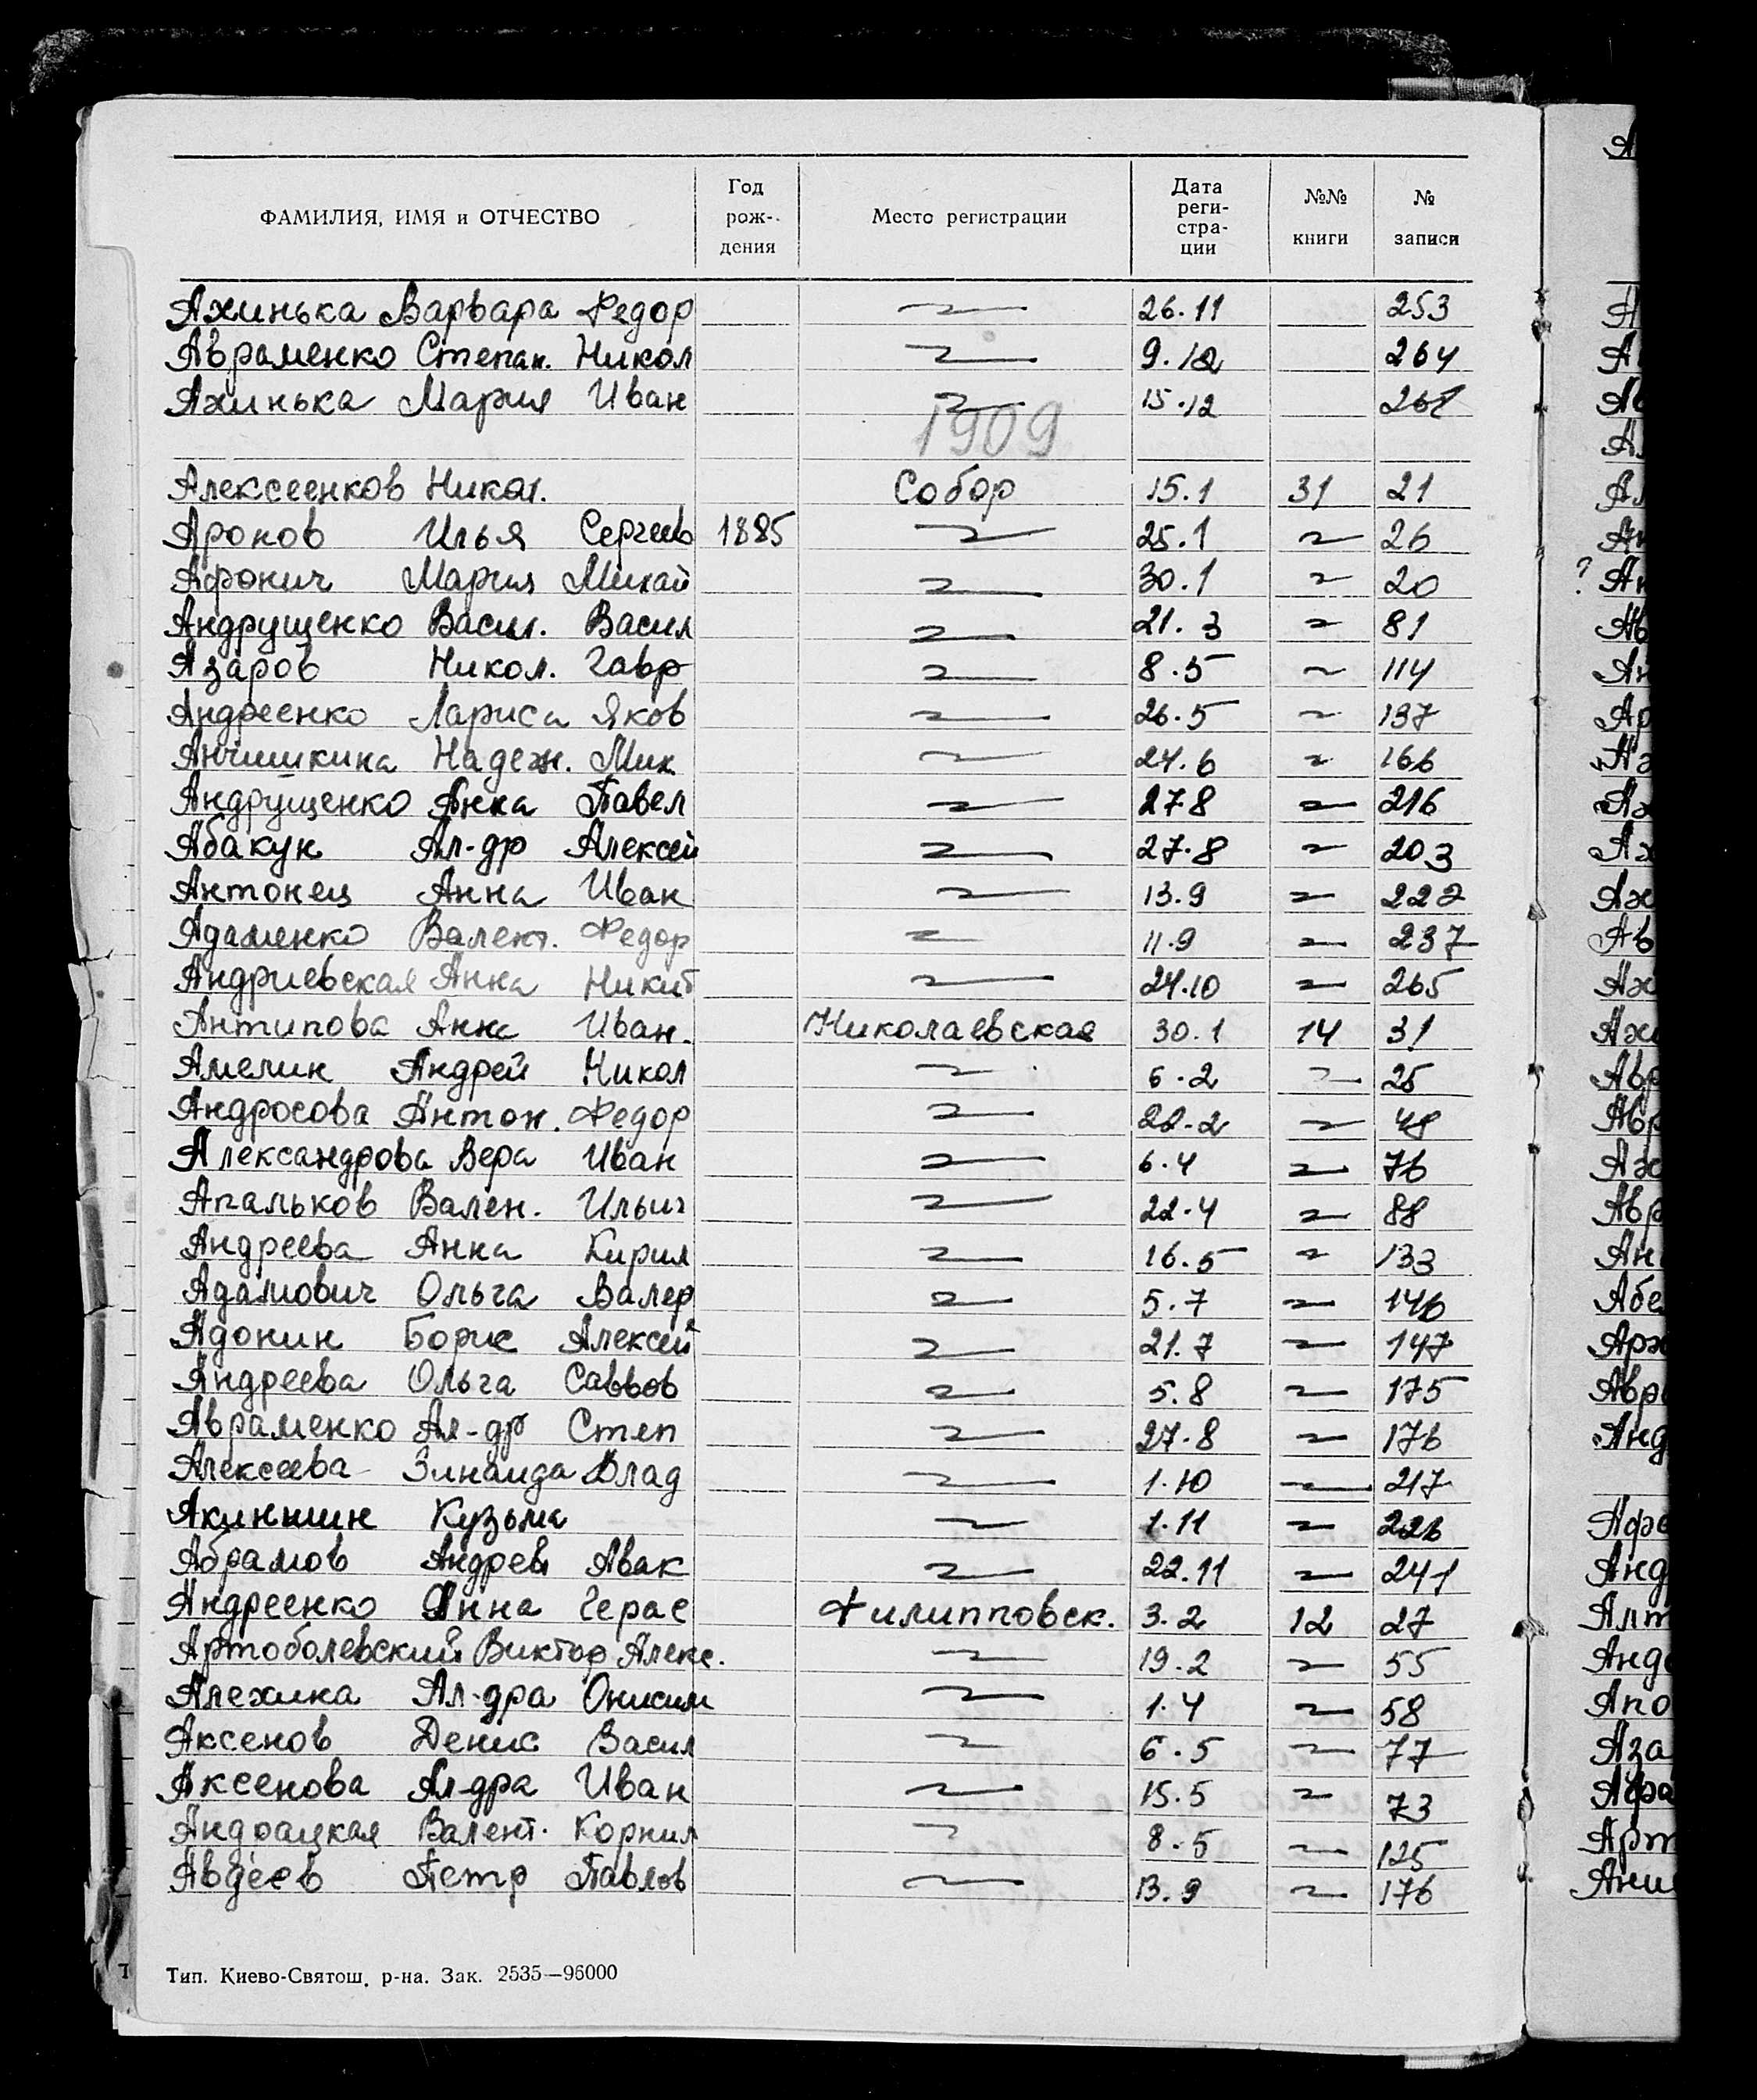 ФАМИЛИЯ, ИМЯ и ОТЧЕСТВО Год рож-дения Место регистрации Дата реги-стра-ции №№ книги № записи
Ахинька Варвара Федор 26.11 253
Авраменко Степан. Никол 9.12 264
Ахинька Мария Иван 15.12
1909
Алексеенков Никол. Собор 15.1 31 21
Аронов Илья Сергеев 1885 25.1 26
Афонич Мария Михай 30.1 20
Андрущенко Васил. Васил 21.3 81
Азаров Никол. Гавр 8.5 114
Андреенко Лариса Яков 26.5 137
Анчишкина Надеж. Мих 24.6 166
Андрущенко Анна Павел 27.8 216
Абакун Ал-др Алексей 27.8 203
Антонец Анна Иван 13.9 222
Адаменко Валент. Федор 11.9 237
Андриевская Анна Никит 24.10 265
Антипова Анна Иван. Николаевская 30.1 14 31
Амелин Андрей Никол 6.2 25
Андросова Антон. Федор 22.2 48
Александрова Вера Иван 6.4 76
Апальков Вален. Ильич 22.4 88
Андреева Анна Кирил 16.5 133
Адамович Ольга Валер 5.7 146
Адонин Борис Алексей 21.7 147
Андреева Ольга Саввов 5.8 175
Авраменко Ал-др Степ 27.8 176
Алексеева Зинаида Влад 1.10 217
Акиншин Кузьма 1.11 226
Абрамов Андрей Авак 22.11 241
Андреенко Анна Герас Филипповск. 3.2 12 27
Артоболевский Виктор Алекс. 19.2 55
Алехина Ал-дра Онисим 1.4 58
Аксенов Денис Васил 6.5 77
Аксенова Ал-дра Иван 15.5 73
Валент. Корнил 8.5 125
Авдеев Петр Павлов 13.9 176
Тип. Киево-Святош. р-на. Зак. 2535—96000